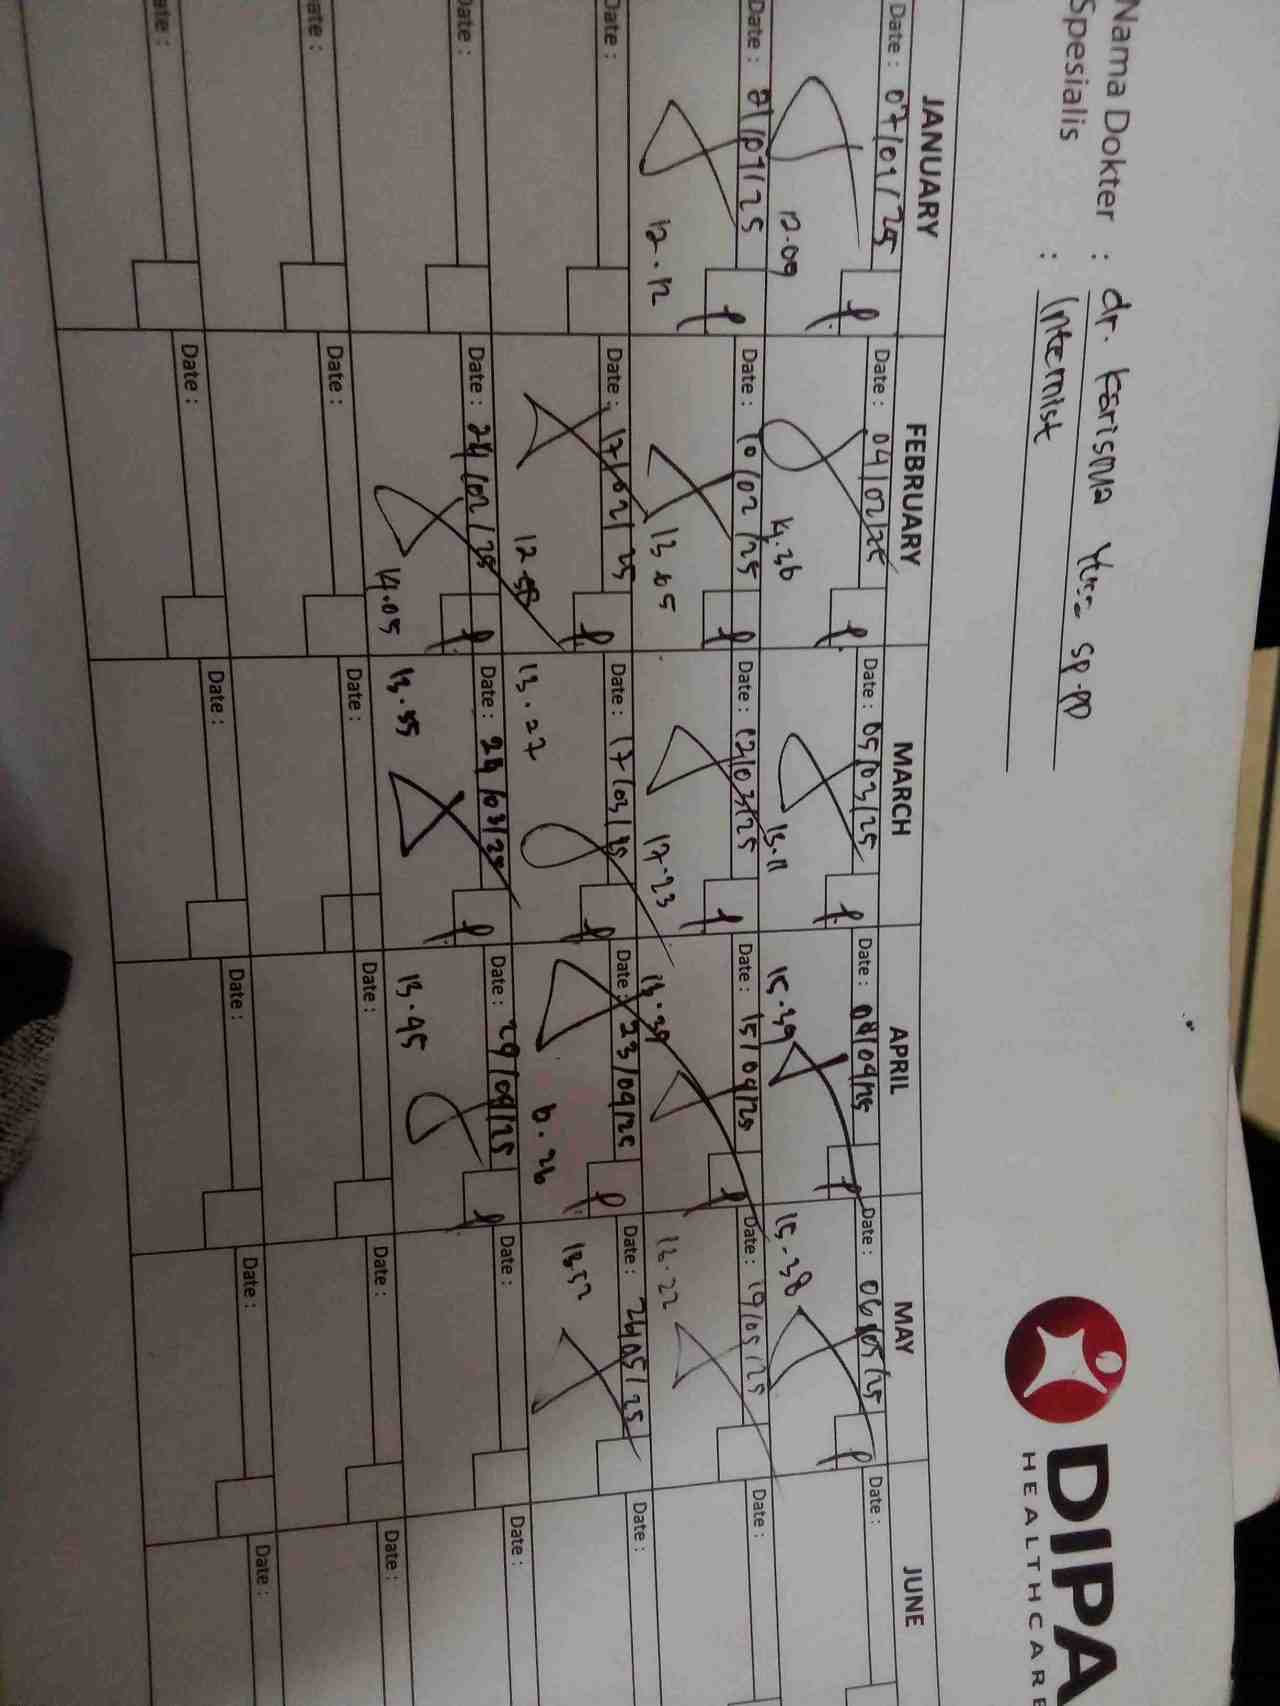 DIPA
HEALTHCARE
Nama Dokter : dr. Karisma Sp.PD
Spesialis : Internist
JANUARY FEBRUARY MARCH APRIL MAY JUNE
Date : 07/01/25 Date : 04/02/25 Date : 05/03/25 Date : 08/04/25 Date : 06/05/25 Date :
12.09 14.36 13.11 15.39 15.38
Date : 21/01/25 Date : 10/02/25 Date : 12/03/25 Date : 15/04/25 Date : 19/05/25 Date :
12.12 13.05 17.23 13.39 13.22
Date : Date : 17/02/25 Date : 17/03/25 Date : 23/04/25 Date : 26/05/25 Date :
12. 13.27 13.52
Date : Date : 24/02/25 Date : 24/03/25 Date : 29/04/25 Date : Date :
14.05 13.55 13.45
Date : Date : Date : Date : Date : Date :
Date : Date : Date : Date : Date : Date :